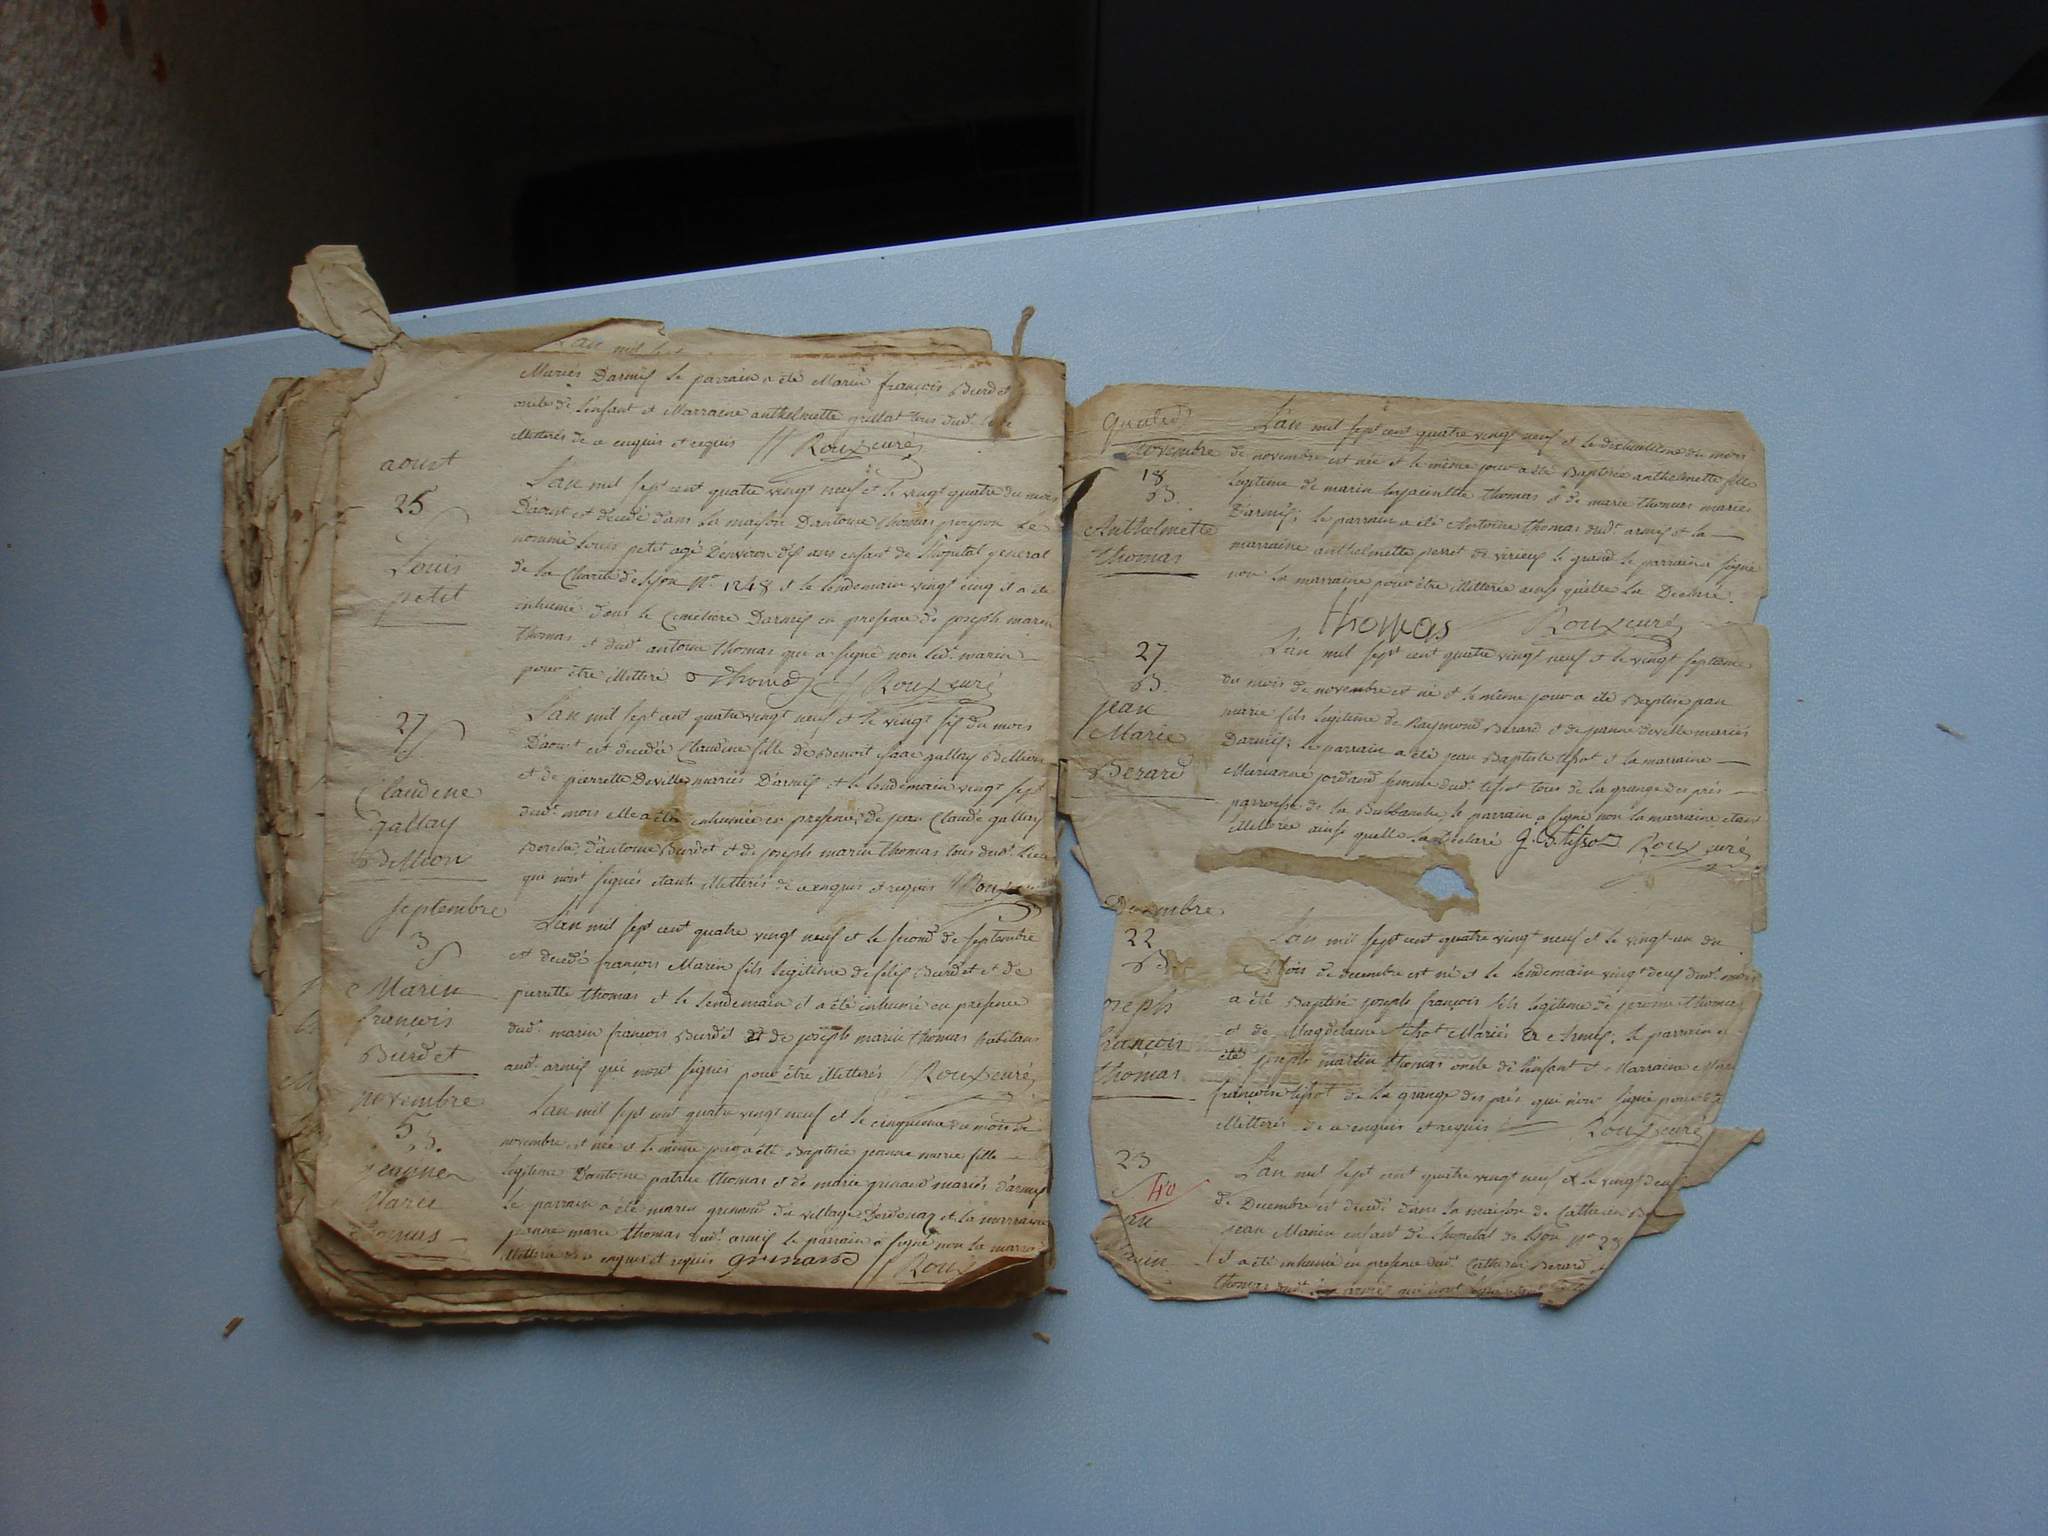 L'an mil sept
Mariés Darmix le parrain a été Marin françois Burdet
oncle de l'enfant et Marraine anthelmette grillat tous dudt lieu
illetterés de ce enquis et requis Roux curé
aoust
25
S
Louis
petit
L'an mil sept cent quatre vingt neuf et le vingt quatre du mois
D'aoust est decedé dans la maison D'antoine thomas le
nommé Louis petit agé D'environ dix ans enfant de l'hopital general
de la Charité de Lyon No 1248 et le lendemain vingt cinq il a été
inhumé dans le Cimetiere Darmix en presence de joseph marin
thomas et dudt antoine thomas qui a signé non ledt marin
pour être illetteré thomas Roux curé
27
S
Claudine
gallay
Bellion
L'an mil sept cent quatre vingt neuf et le vingt six du mois
D'aoust est decedée Claudine fille de Benoit isaac gallay Bellion
et de pierrette Deville mariés D'armix et le lendemain vingt sept
dudt mois elle a été inhumée en presence de jean Claude gallay
D'antoine Burdet et de joseph marin thomas tous dudt lieu
qui n'ont signés étants illetterés de ce enquis et requis Roux
septembre
3
S
Marin
françois
Burdet
L'an mil sept cent quatre vingt neuf et le second de septembre
est decedé françois Marin fils legitime de felix Burdet et de
pierrette thomas et le lendemain il a été inhumé en presence
dudt marin françois Burdet et de joseph marin thomas habitans
audt armix qui n'ont signés pour être illetterés Roux curé
novembre
5
B.
jeanne
Marie
thomas
L'an mil sept cent quatre vingt neuf et le cinquieme du mois de
novembre est née et le même jour a été Baptisée jeanne marie fille
legitime D'antoine thomas et de marie grinand mariés d'armix
le parrain a été marin grinand du village D'ordonaz et la marraine
jeanne marie thomas dudt armix le parrain a signé non la marraine
illetterée de ce enquis et requis grinand Roux
novembre
18
B.
Anthelmette
thomas
L'an mil sept cent quatre vingt neuf et le dixhuitieme du mois
de novembre est née et le même jour a été Baptisée anthelmette fille
legitime de marin hyacinthe thomas et de marie thomas mariés
D'armix; le parrain a été Antoine thomas dudt armix et la
marraine anthelmette perret de virieux le grand le parrain a signé
non la marraine pour être illetterée ainsi qu'elle l'a Declaré.
thomas Roux curé
27
B.
jean
Marie
Berard
L'an mil sept cent quatre vingt neuf et le vingt septieme
du mois de novembre est né et le même jour a été Baptisé jean
marie fils legitime de Raymond Berard et de jeanne deville mariés
Darmix; le parrain a été jean Baptiste tissot et la marraine
Marianne jordand femme dudt tissot tous de la grange des prés
parroisse de la Burbanche, le parrain a signé non la marraine étant
illetterée ainsi quelle l'a declaré J. B. tissot Roux curé
Decembre
22
B.
joseph
françois
thomas
L'an mil sept cent quatre vingt neuf et le vingt-un du
Mois de decembre est né et le lendemain vingt deux dudt mois
a été Baptisé joseph françois fils legitime de jerome thomas
et de Magdelaine tissot Mariés Armix. le parrain a
été joseph martin thomas oncle de l'enfant et Marraine
françoise tissot de la grange des prés qui n'ont signé pour être
illetterés de ce enquis et requis Roux curé
23
S
40
L'an mil sept cent quatre vingt neuf et le vingt deux
de Decembre est decedé dans la maison de Catherine
jean Marin enfant de l'hopital de Lyon No 23
il a été inhumé en presence dudt Berard
thomas dudt armix qui n'ont